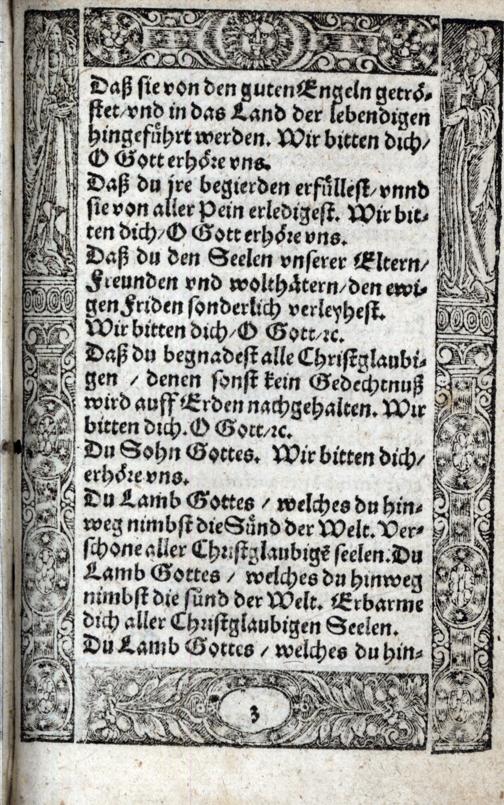 Daß sie von den guten Engeln getrö-
stet/vnd in das Land der lebendigen
hingeführt werden. Wir bitten dich/
O Gott erhöre vns.
Daß du jre begierden erfüllest/vnnd
sie von aller Pein erledigest. Wir bit-
ten dich/O Gott erhöre vns.
Daß du den Seelen vnserer Eltern/
Freunden vnd wolthätern/den ewi-
gen Friden sonderlich verleyhest.
Wir bitten dich/O Gott/ꝛc.
Daß du begnadest alle Christglaubi-
gen / denen sonst kein Gedechtnuß
wird auff Erden nachgehalten. Wir
bitten dich. O Gott/ꝛc.
Du Sohn Gottes. Wir bitten dich/
erhöre vns.
Du Lamb Gottes / welches du hin-
weg nimbst die Sünd der Welt. Ver-
schone aller Christglaubigē seelen. Du
Lamb Gottes / welches du hinweg
nimbst die sünd der Welt. Erbarme
dich aller Christglaubigen Seelen.
Du Lamb Gottes / welches du hin-
3